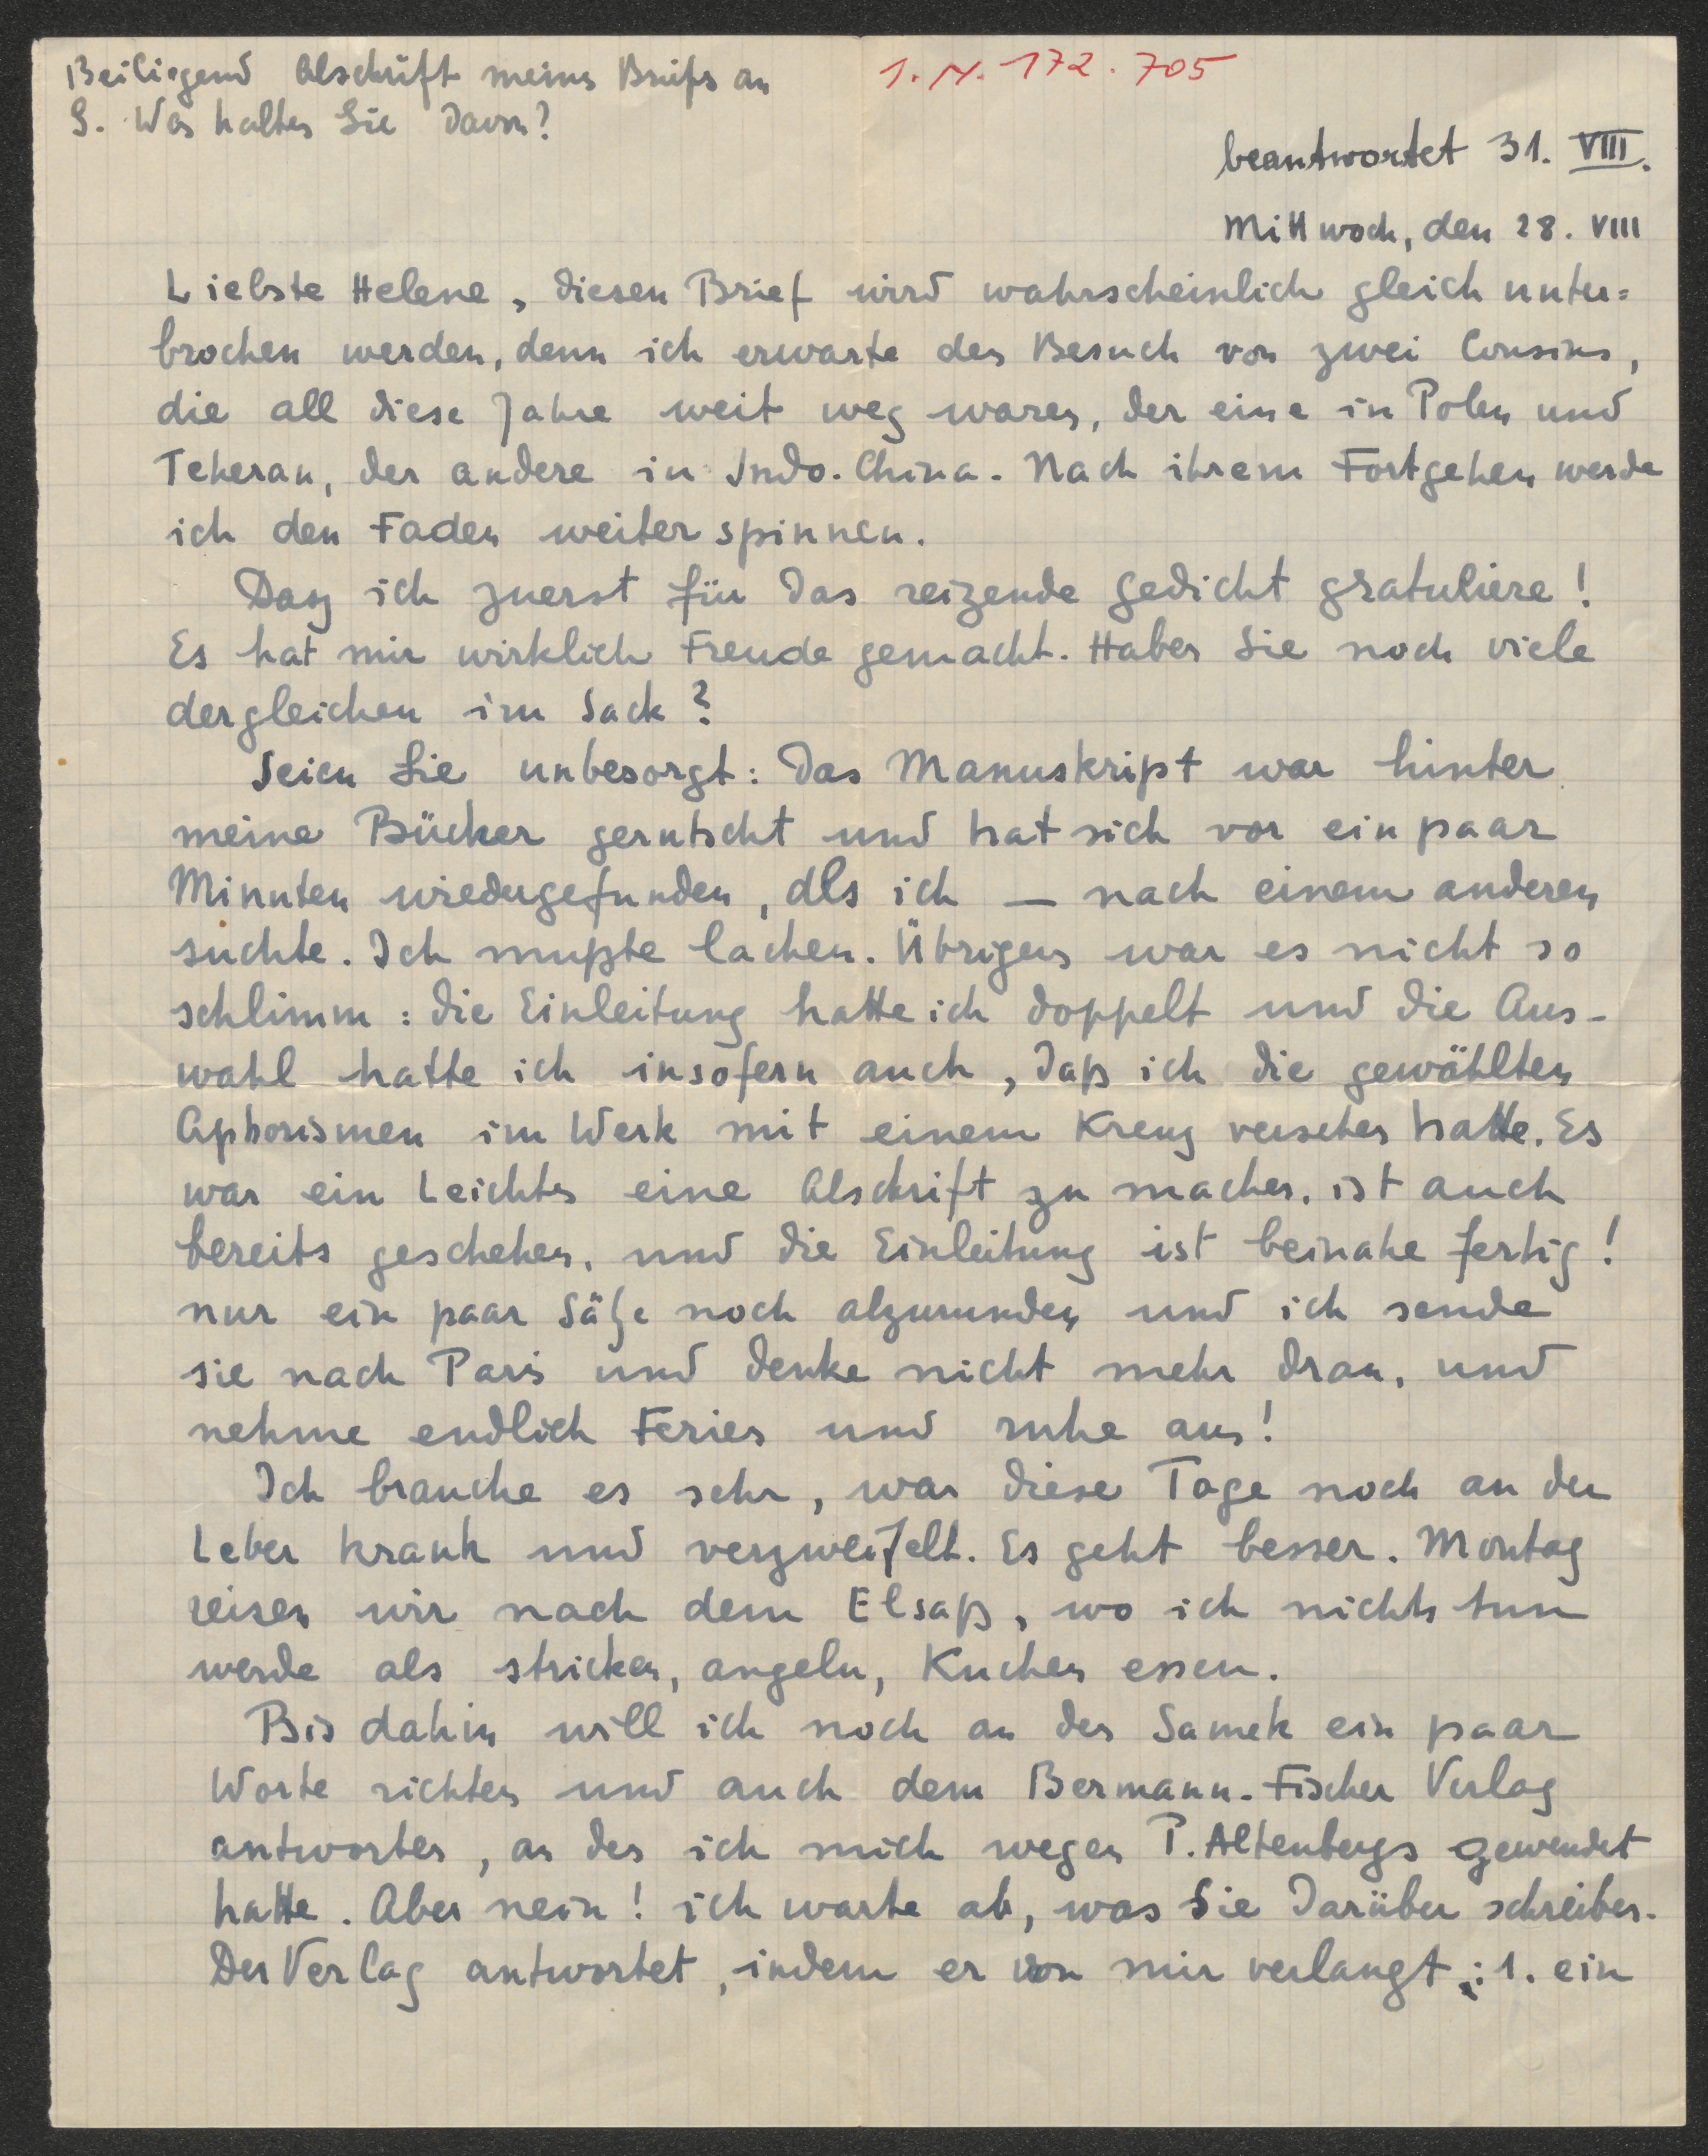 Beiliegend Abschrift meines Briefs an
S. Was halten Sie davon?
I. N. 172.705
beantwortet 31. VIII.
Mittwoch, den 28. VIII
Liebste Helene, diesen Brief wird wahrscheinlich gleich unter=
brochen werden, denn ich erwarte den Besuch von zwei Cousins,
die all diese Jahre weit weg waren, der eine in Polen und
Teheran, der andere in Indo-China. Nach ihrem Fortgehen werde
ich den Faden weiter spinnen.
Dasz ich zuerst für das reizende Gedicht gratuliere!
Es hat mir wirklich Freude gemacht. Haben Sie noch viele
dergleichen im Sack?
Seien Sie unbesorgt: das Manuskript war hinter
meine Bücher gerutscht und hat sich vor ein paar
Minuten wiedergefunden, als ich — nach einem anderen
suchte. Ich mußte lachen. Übrigens war es nicht so
schlimm: die Einleitung hatte ich doppelt und die Aus-
wahl hatte ich insofern auch, daß ich die gewählten
Aphorismen im Werk mit einem Kreuz versehen hatte. Es
war ein Leichtes eine Abschrift zu machen, ist auch
bereits geschehen, und die Einleitung ist beinahe fertig!
nur ein paar Sätze noch abzurunden und ich sende
sie nach Paris und denke nicht mehr dran, und
nehme endlich Ferien und ruhe aus!
Ich brauche es sehr, war diese Tage noch an der
Leber krank und verzweifelt. Es geht besser. Montag
reisen wir nach dem Elsaß, wo ich nichts tun
werde als stricken, angeln, Kuchen essen.
Bis dahin will ich noch an den Samek ein paar
Worte richten und auch dem Bermann-Fischer Verlag
antworten, an den ich mich wegen P. Altenbergs gewendet
hatte. Aber nein! ich warte ab, was Sie darüber schreiben.
Der Verlag antwortet, indem er von mir verlangt: 1. ein